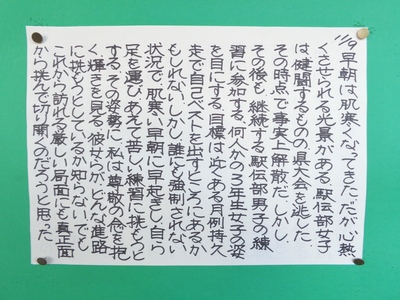 11/9
早朝は肌寒くなってきた。だが、心熱
くさせられる光景がある。駅伝部女子
は健闘するものの県大会を逃した。
その時点で事実上解散だ。しかし、
その後も継続する駅伝部男子の練
習に参加する、何人かの3年生女子の姿
を目にする。目標は近くある月例持久
走で自己ベストを出すところにあるか
もしれない。しかし、誰にも強制されない
状況で、肌寒い早朝に早起きし、自ら
足を運び、あえて苦しい練習に挑もうと
する、その姿勢に、私は尊敬の念を抱
く。輝きを見る。彼女らが、どんな進路
に挑もうとしているか知らない。でも
これから訪れる厳しい局面にも真正面
から挑んで切り開くのだろうと思った。